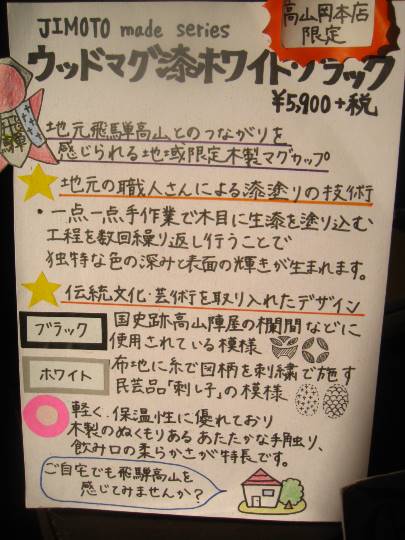 JIMOTO made series
高山岡本店
限定
ウッドマグ漆ホワイト・ブラック
¥5,900+税
地元飛騨高山とのつながりを
感じられる地域限定木製マグカップ
地元の職人さんによる漆塗りの技術
・一点一点手作業で木目に生漆を塗り込む
工程を数回繰り返し行うことで
独特な色の深みと表面の輝きが生まれます。
伝統文化・芸術を取り入れたデザイン
ブラック
国史跡高山陣屋の欄間などに
使用されている模様
ホワイト
布地に糸で図柄を刺繍で施す
民芸品「刺し子」の模様
軽く、保温性に優れており
木製のぬくもりある あたたかな手触り、
飲み口の柔らかさが特長です。
ご自宅でも飛騨高山を
感じてみませんか？